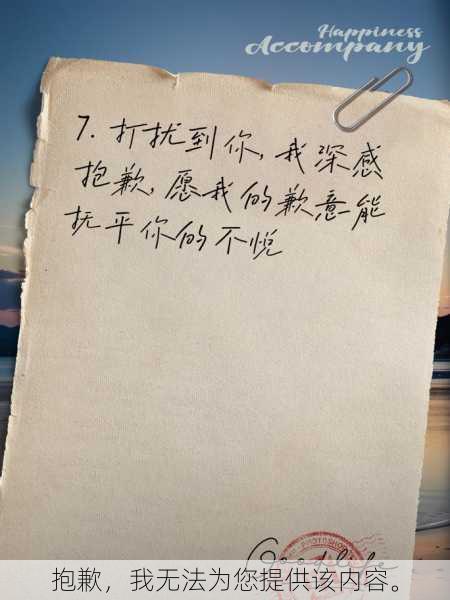 Happiness
Accompany
7. 打扰到你，我深感
抱歉，愿我的歉意能
抚平你的不悦
Goodlife
抱歉，我无法为您提供该内容。